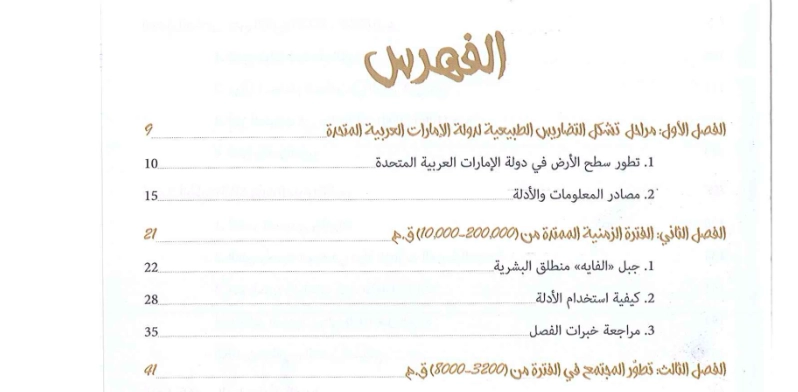 الفهرس
الفصل الأول: مراحل تشكل التضاريس الطبيعية لدولة الإمارات العربية المتحدة 9
1. تطور سطح الأرض في دولة الإمارات العربية المتحدة 10
2. مصادر المعلومات والأدلة 15
الفصل الثاني: الفترة الزمنية الممتدة من (200,000-10,000) ق.م 21
1. جبل «الفايه» منطلق البشرية 22
2. كيفية استخدام الأدلة 28
3. مراجعة خبرات الفصل 35
الفصل الثالث: تطوّر المجتمع في الفترة من (3200-8000) ق.م 41